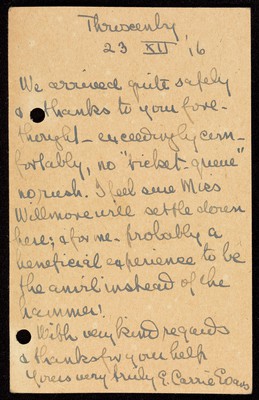 Throxenby
23 XII '16
We arrived quite safely
& thanks to your fore-
thought - exceedingly com-
fortably, no "ticket-queue"
no rush. I feel sure Miss
Willmore will settle down
here; & for me - probably a
beneficial experience to be
the anvil instead of the
hammer!
With very kind regards
& thanks for your help
Yours very truly E. Carrie Evans